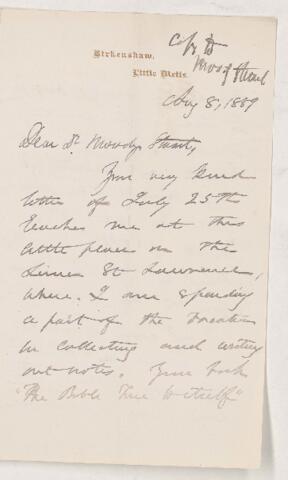 Birkenshaw,
Little Metis.
Cop D
Moody Stuart
Aug 8, 1889
Dear Dr Moody Stuart,
Your very kind
letter of July 25th
reaches me at this
little place on the
Lower St Lawrence,
where I am spending
a part of the vacation
in collecting and writing
out notes. Your book
"The Bible True to itself"